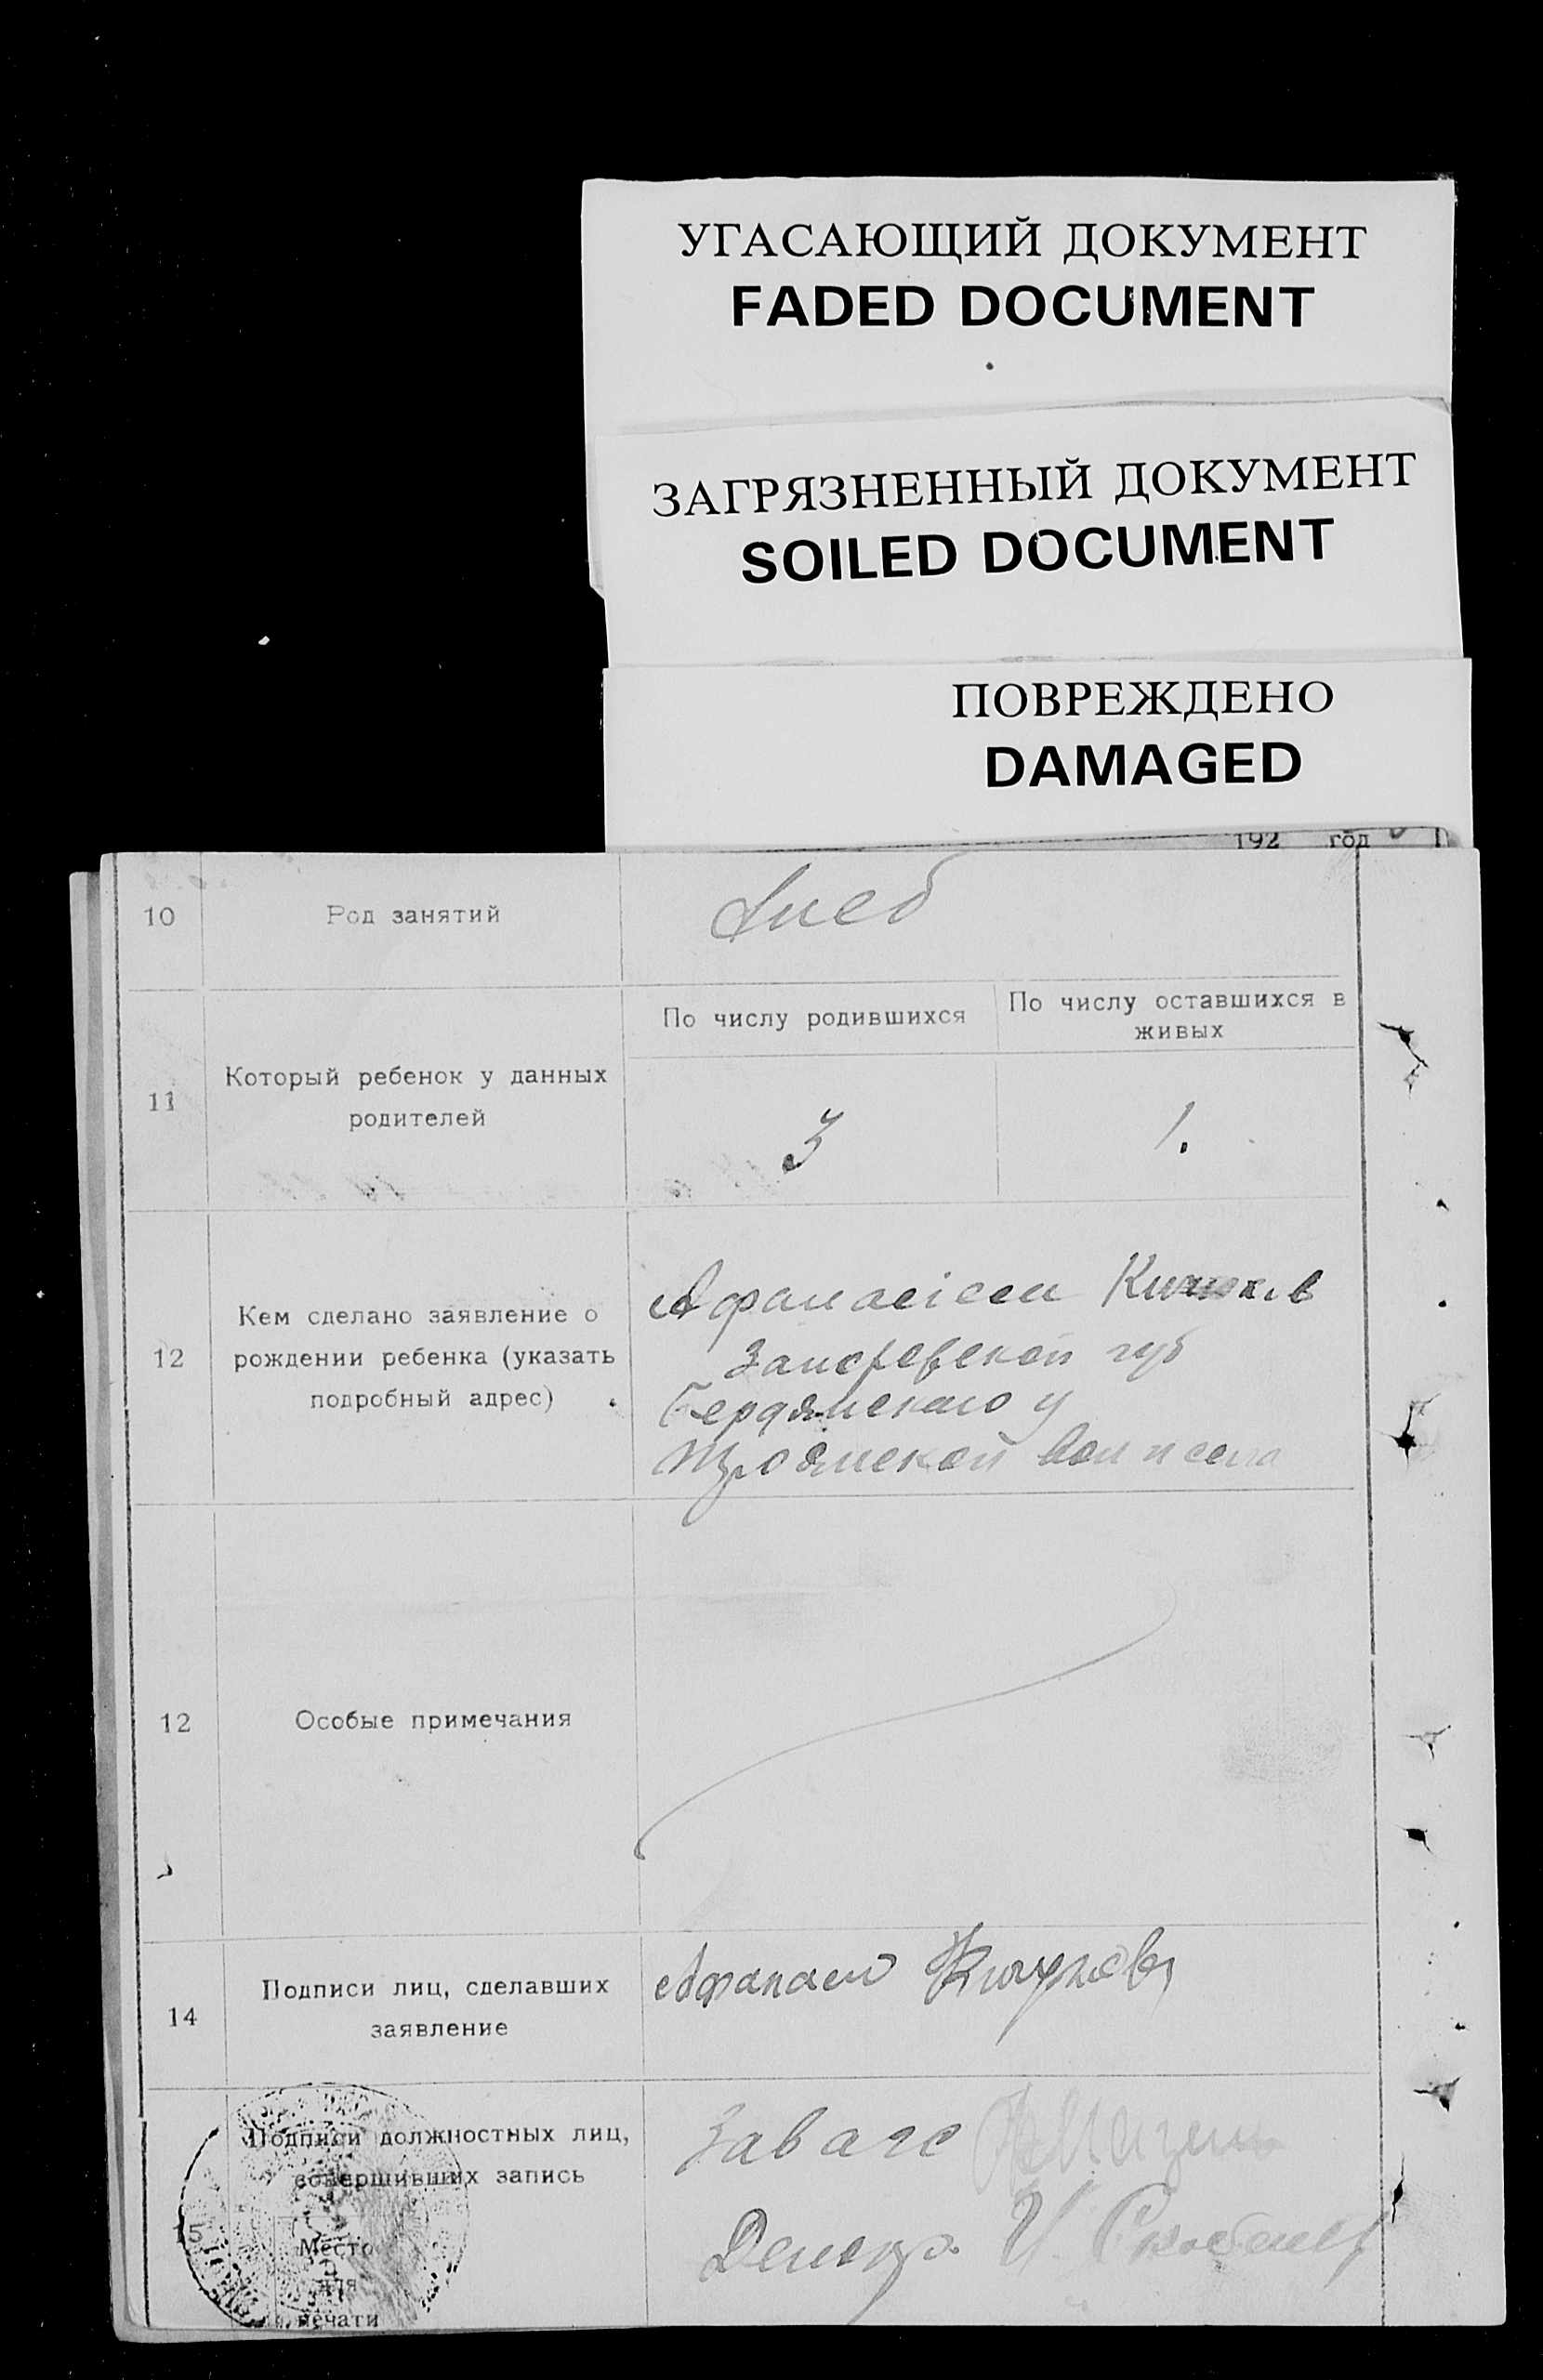 УГАСАЮЩИЙ ДОКУМЕНТ
FADED DOCUMENT
ЗАГРЯЗНЕННЫЙ ДОКУМЕНТ
SOILED DOCUMENT
ПОВРЕЖДЕНО
DAMAGED
192 год
10
Род занятий
хлеб
По числу родившихся
По числу оставшихся в
живых
11
Который ребенок у данных
родителей
3
1.
12
Кем сделано заявление о
рождении ребенка (указать
подробный адрес)
Запорожской губ
Бердянского у
вол и села
12
Особые примечания
14
Подписи лиц, сделавших
заявление
15
Подписи должностных лиц,
совершивших запись
Место
для
печати
Завагс
Делопр. И.